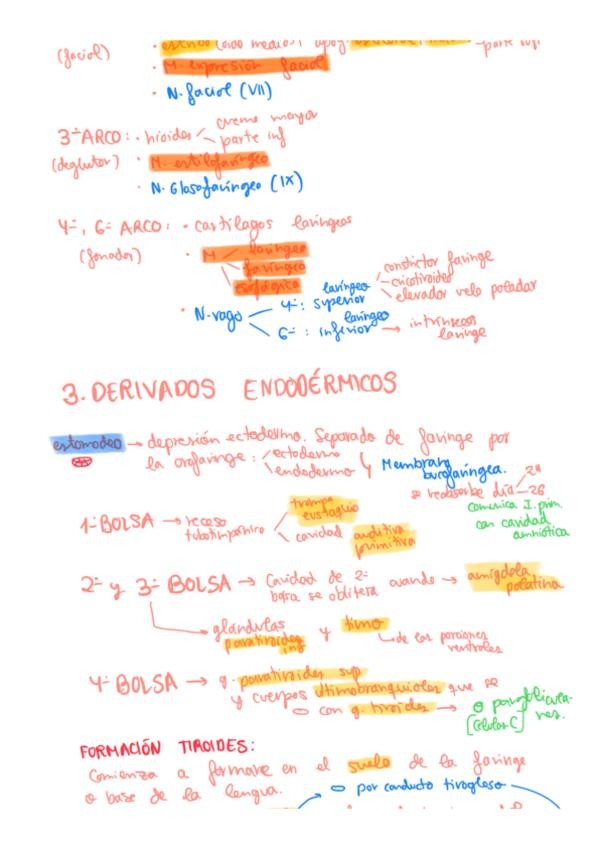 estribo (oído medio), apóf.
(facial)
parte sup
· M. expresión facial
· N. facial (VII)
cuerno mayor
3º ARCO: · hioides parte inf
(deglutor) · M. estilofaríngeo
· N. Glosofaríngeo (IX)
4º, 6º ARCO: · cartílagos laríngeos
(fonador) · M laríngeo
faríngeo
esofágico
constrictor faringe
cricotiroides
elevador velo paladar
· N. vago
4º: laríngeo superior
6º: laríngeo inferior → intrínsecos laringe
3. DERIVADOS ENDODÉRMICOS
estomodeo → depresión ectodermo. Separado de faringe por
la orofaríngea: ectodermo
endodermo
Membrana bucofaríngea.
se reabsorbe día 24
26
comunica I. prim.
con cavidad
amniótica
1º BOLSA → receso tubotimpánico
trompa eustaquio
cavidad auditiva primitiva
2º y 3º BOLSA → Cavidad de 2º bolsa se oblitera cuando → amígdala palatina
glándulas paratiroides inf y timo
de las porciones ventrales
4º BOLSA → g. paratiroides sup
y cuerpos ultimobranquiales que se
con g. tiroides → parafolicula-
[Células C] res.
FORMACIÓN TIROIDES:
Comienza a formarse en el suelo de la faringe
o base de la lengua.
por conducto tirogloso